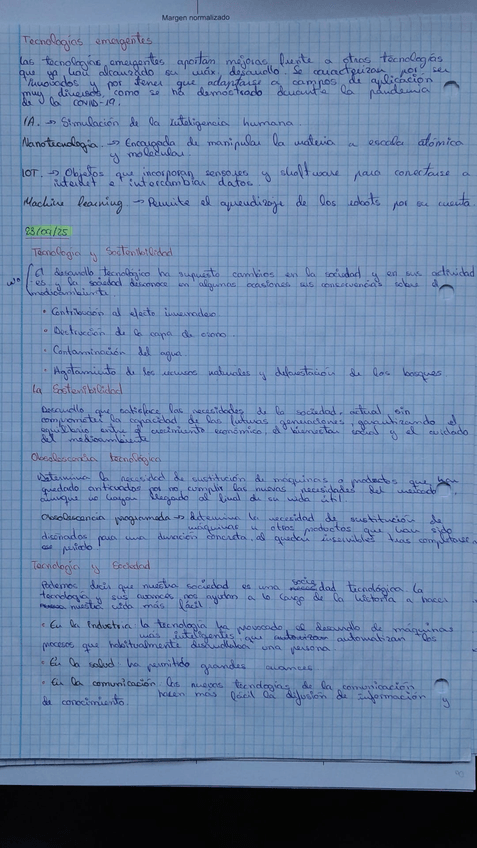 Margen normalizado
Tecnologías emergentes
Las tecnologías emergentes aportan mejoras frente a otras tecnologías
que ya han alcanzado su máx. desarrollo. Se caracterizan por ser
innovados y por tener que adaptarse a campos de aplicación
muy diversos, como se ha demostrado durante la pandemia
de la COVID-19.
IA. → Simulación de la inteligencia humana
Nanotecnología. → Encargada de manipular la materia a escala atómica
y molecular
IOT. → Objetos que incorporan sensores y shoftware para conectarse a
internet e intercambiar datos
Machine learning. → Permite el aprendizaje de los robots por su cuenta
23/09/25
Tecnología y Sostenibilidad
El desarrollo tecnológico ha supuesto cambios en la sociedad y en sus actividad
es y la sociedad desconoce en algunas ocasiones sus consecuencias sobre el
medioambiente
• Contribución al efecto invernadero
• Destrucción de la capa de ozono
• Contaminación del agua
• Agotamiento de los recursos naturales y deforestación de los bosques
La Sostenibilidad
Desarrollo que satisface las necesidades de la sociedad actual sin
comprometer la capacidad de las futuras generaciones, garantizando el
equilibrio entre el crecimiento económico, el bienestar social y el cuidado
del medioambiente
Obsolescencia tecnológica
Determina la necesidad de sustitución de máquinas o productos que han
quedado anticuados por no cumplir las nuevas necesidades del mercado
aunque no hayan llegado al final de su vida útil
Obsolescencia programada → determina la necesidad de sustitución de
máquinas u otros productos que han sido
diseñados para una duración concreta, al quedar inservibles tras completarse
ese periodo
Tecnología y Sociedad
Podemos decir que nuestra sociedad es una sociedad tecnológica. La
tecnología y sus avances nos ayudan a lo largo de la historia a hacer
nuestra vida más fácil
• En la Industria la tecnología ha provocado el desarrollo de máquinas
más inteligentes que automatizan los
procesos que habitualmente desarrollaba una persona
• En la salud ha permitido grandes avances
• En la comunicación. Las nuevas tecnologías de la comunicación
hacen más fácil la difusión de información y
de conocimiento.